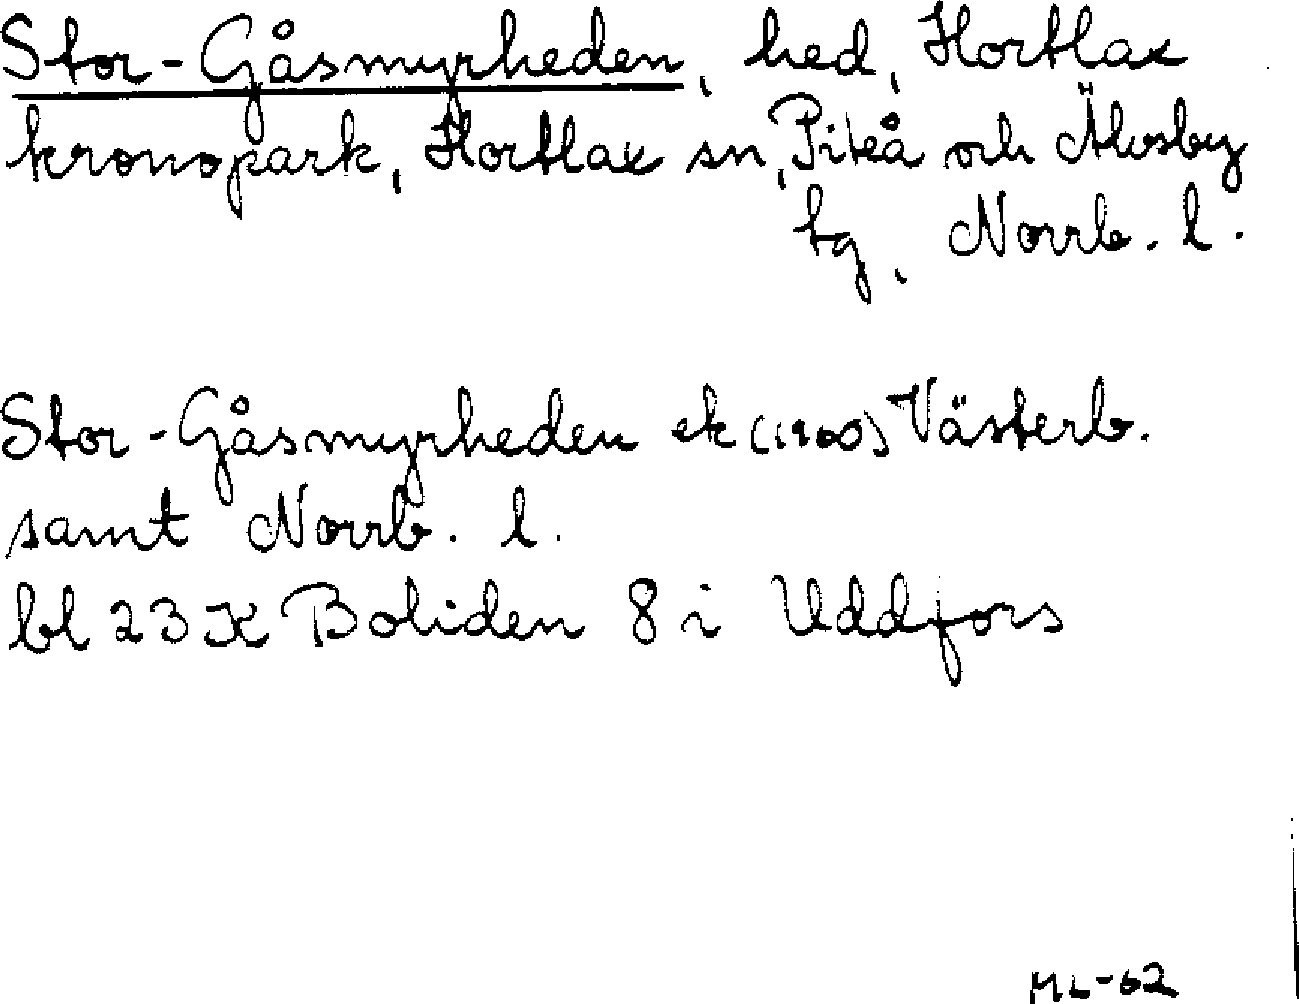 Stor-Gåsmyrheden, hed, Hortlax
kronopark, Hortlax sn, Piteå och Älvsby
tg, Norrb. l.
Stor-Gåsmyrheden ek (1960) Västerb.
samt Norrb. l.
bl 23 K Boliden 8 i Uddfors
ML-62